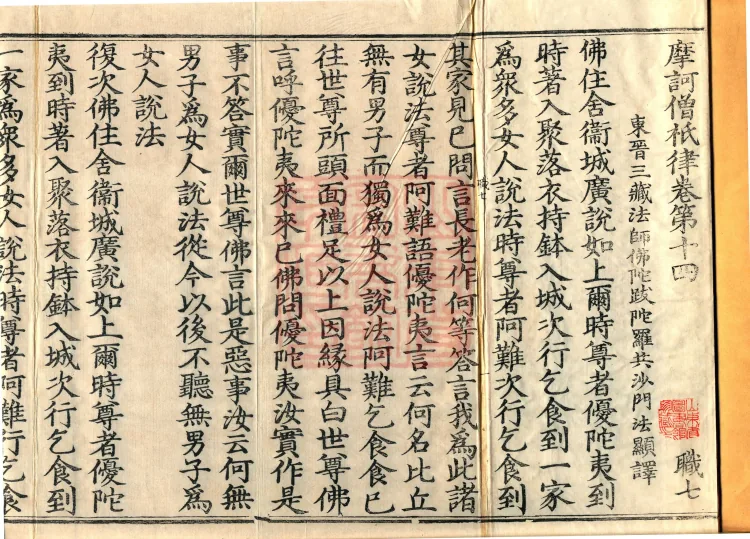 摩訶僧祇律卷第十四 職七
東晉三藏法師佛陀跋陀羅共沙門法顯譯
佛住舍衞城廣說如上爾時尊者優陀夷到
時著入聚落衣持鉢入城次行乞食到一家
爲衆多女人說法時尊者阿難次行乞食到
職七
其家見已問言長老作何等答言我爲此諸
女說法尊者阿難語優陀夷言云何名比丘
無有男子而獨爲女人說法阿難乞食食已
往世尊所頭面禮足以上因緣具白世尊佛
言呼優陀夷來來已佛問優陀夷汝實作是
事不答實爾世尊佛言此是惡事汝云何無
男子爲女人說法從今以後不聽無男子爲
女人說法
復次佛住舍衞城廣說如上爾時尊者優陀
夷到時著入聚落衣持鉢入城次行乞食到
一家爲衆多女人說法時尊者阿難行乞食